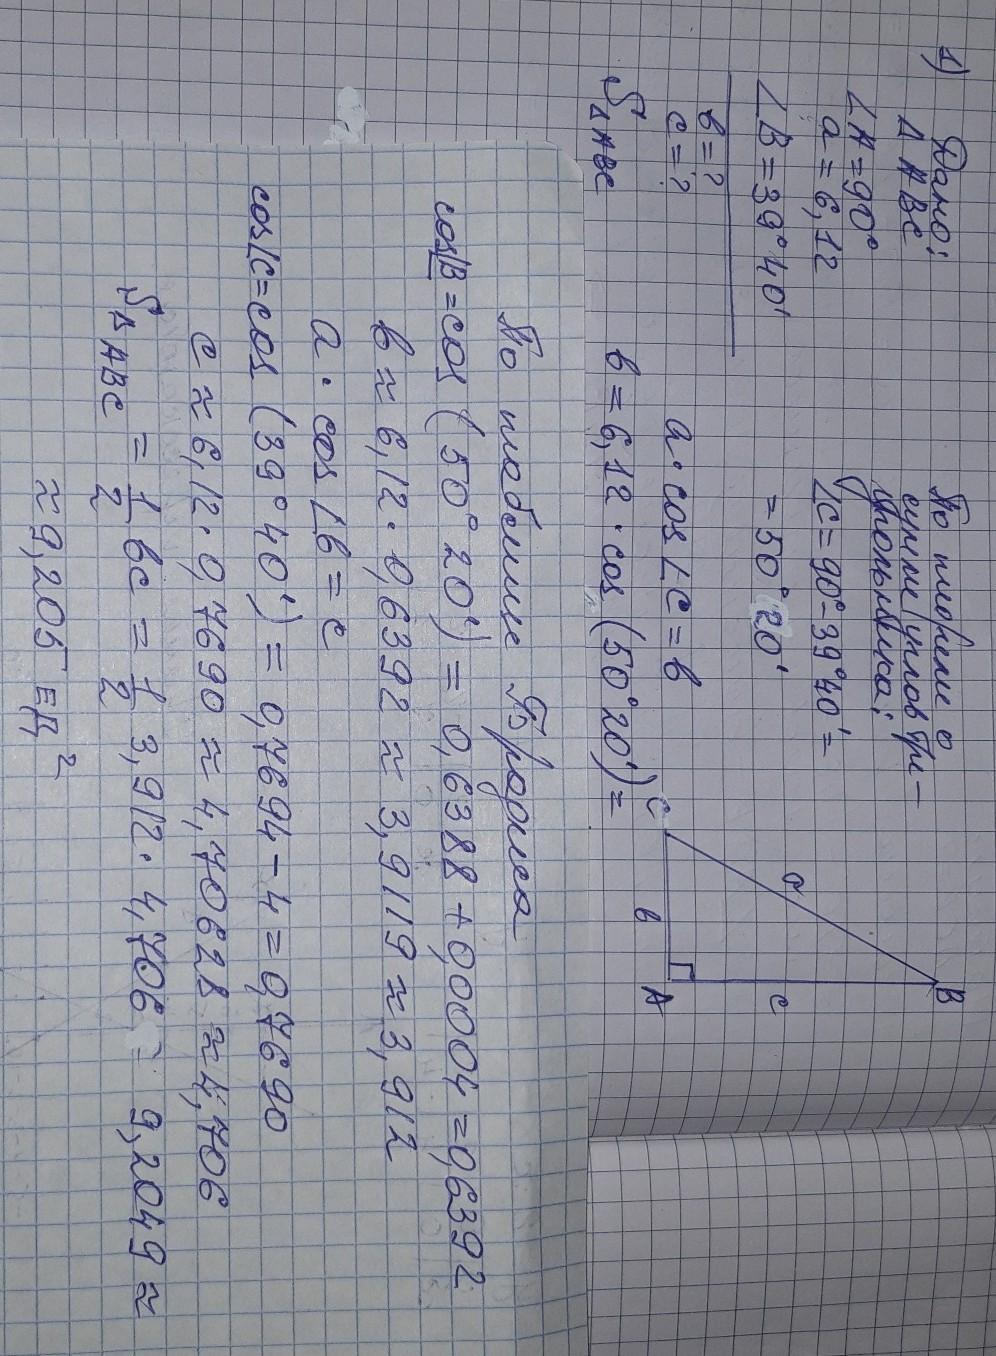 1) Дано:
Δ ABC
∠A=90°
a=6,12
∠B=39°40'
b=?
c=?
SΔABC
По теореме о
сумме углов тре-
угольника:
∠C=90°-39°40'=
=50°20'
a·cos∠C=b
b=6,12·cos(50°20')=
C
a
B
b
c
A
По таблице Брадиса
cos∠B=cos(50°20')=0,6388+0,0004=0,6392
b≈6,12·0,6392≈3,9119≈3,912
a·cos∠b=c
cos∠C=cos(39°40')=0,7694-4=0,7690
c≈6,12·0,7690≈4,70628≈4,706
SΔABC=1/2bc=1/2 3,912·4,706=9,2049≈
≈9,205 ЕД²